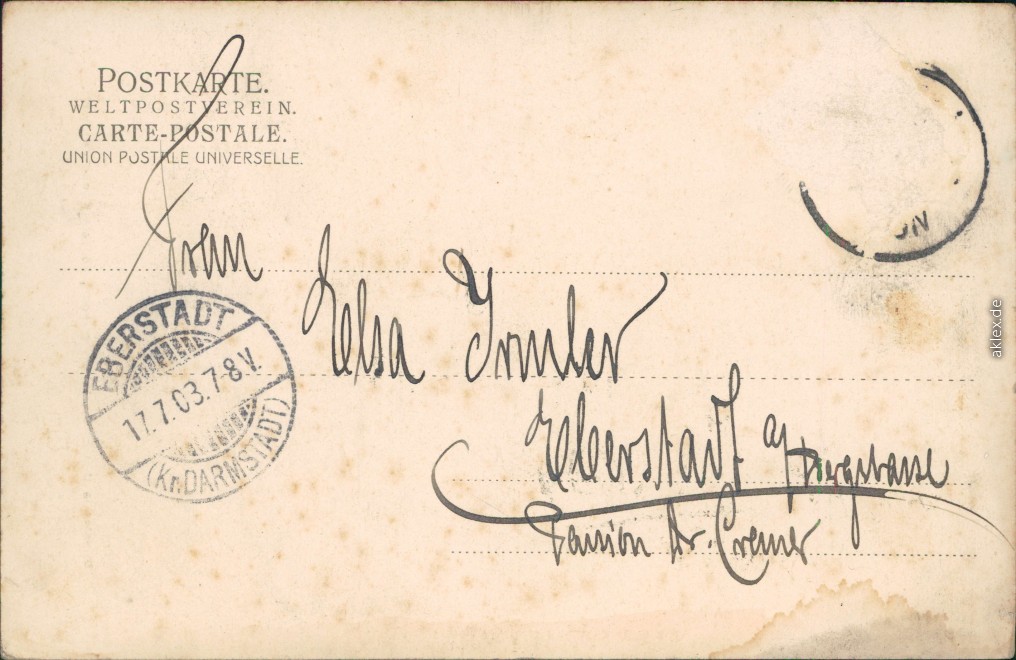 POSTKARTE.
WELTPOSTVEREIN.
CARTE-POSTALE.
UNION POSTALE UNIVERSELLE.
ON
Elsa Irmler
EBERSTADT
17.7.03.7-8V.
(Kr.DARMSTADT)
Eberstadt a/Bergstrasse
Pension Dr. Cremer
aklex.de